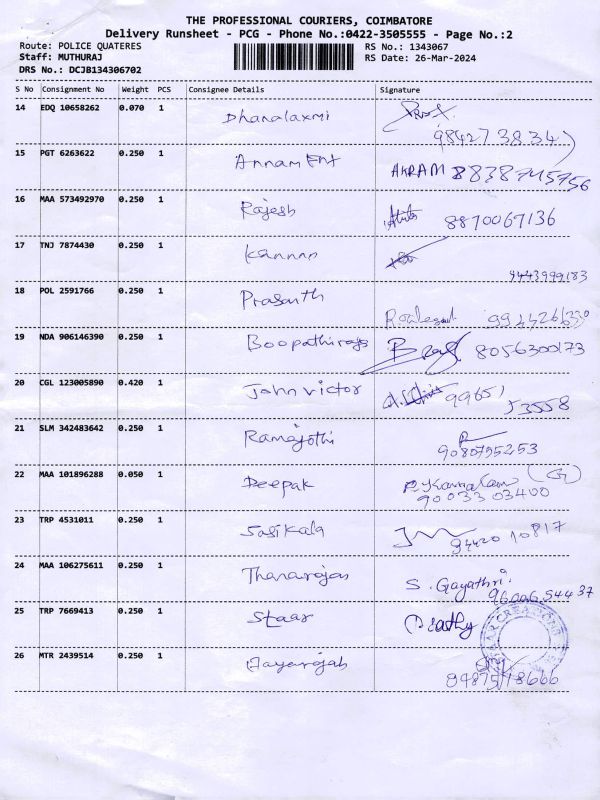 THE PROFESSIONAL COURIERS, COIMBATORE
Delivery Runsheet - PCG - Phone No.:0422-3505555 - Page No.:2
Route: POLICE QUATERES RS No.: 1343067
Staff: MUTHURAJ RS Date: 26-Mar-2024
DRS No.: DCJB134306702
S No Consignment No Weight PCS Consignee Details Signature
14 EDQ 10658262 0.070 1 Dhanalaxmi
15 PGT 6263622 0.250 1 Annam AKRAM 8838745756
16 MAA 573492970 0.250 1 Rajesh 8870067136
17 TNJ 7874430 0.250 1 Kannan
9443999183
18 POL 2591766 0.250 1 Prasanth
19 NDA 906146390 0.250 1 Boopathiraja 8056300173
20 CGL 123005890 0.420 1 John victor 99651
53558
21 SLM 342483642 0.250 1 Ramajothi
9080795253
22 MAA 101896288 0.050 1 Deepak
90033 03400
23 TRP 4531011 0.250 1 Sasikala
94420 10817
24 MAA 106275611 0.250 1 Thanarajan S. Gayathri
9600654437
25 TRP 7669413 0.250 1 Staar
26 MTR 2439514 0.250 1 Jayarajah